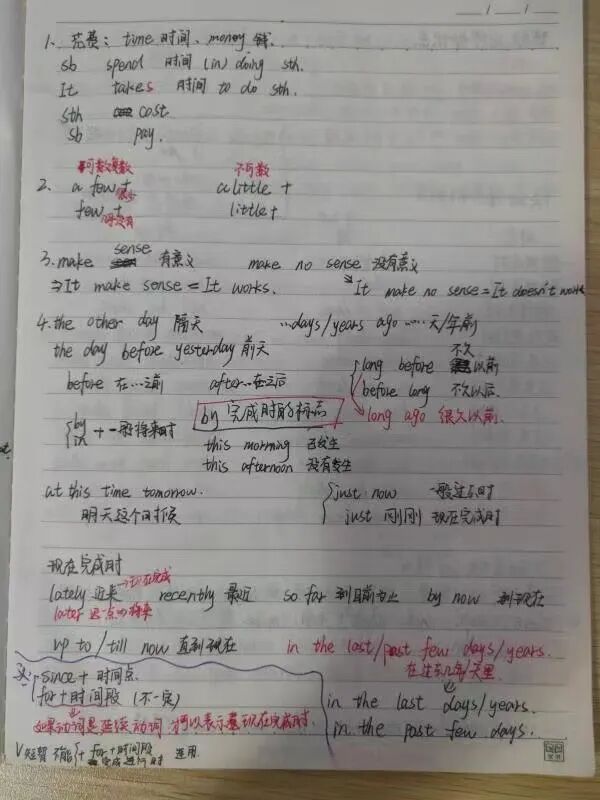 1. 花费: time 时间、money 钱.
sb spend 时间 (in) doing sth.
It takes 时间 to do sth.
sth cost.
sb pay.
可数复数 不可数
2. a few + a little +
很少
few + little +
几乎没有
3. make sense 有意义 make no sense 没有意义
⇒It make sense = It works. It make no sense = It doesn't work
4. the other day 隔天 …days/years ago ……天/年前
the day before yesterday 前天
long before 不久以前
before 在…之前 after…在之后 before long 不久以后.
by 完成时的标志 long ago 很久以前.
by
in + 一般将来时
this morning 已发生
this afternoon 没有发生
at this time tomorrow. just now 一般过去时
明天这个时候 just 刚刚 现在完成时
现在完成时
→现在完成
lately 近来 recently 最近 so far 到目前为止 by now 到现在
later 迟一点 将来
up to/till now 直到现在 in the last/past few days/years.
在过去几年/天里
since + 时间点.
for + 时间段 (不一定) in the last days/years.
如果动词是延续动词,才可以表示现在完成时. in the past few days.
V短暂 不能 + for + 时间段 连用
完成进行时